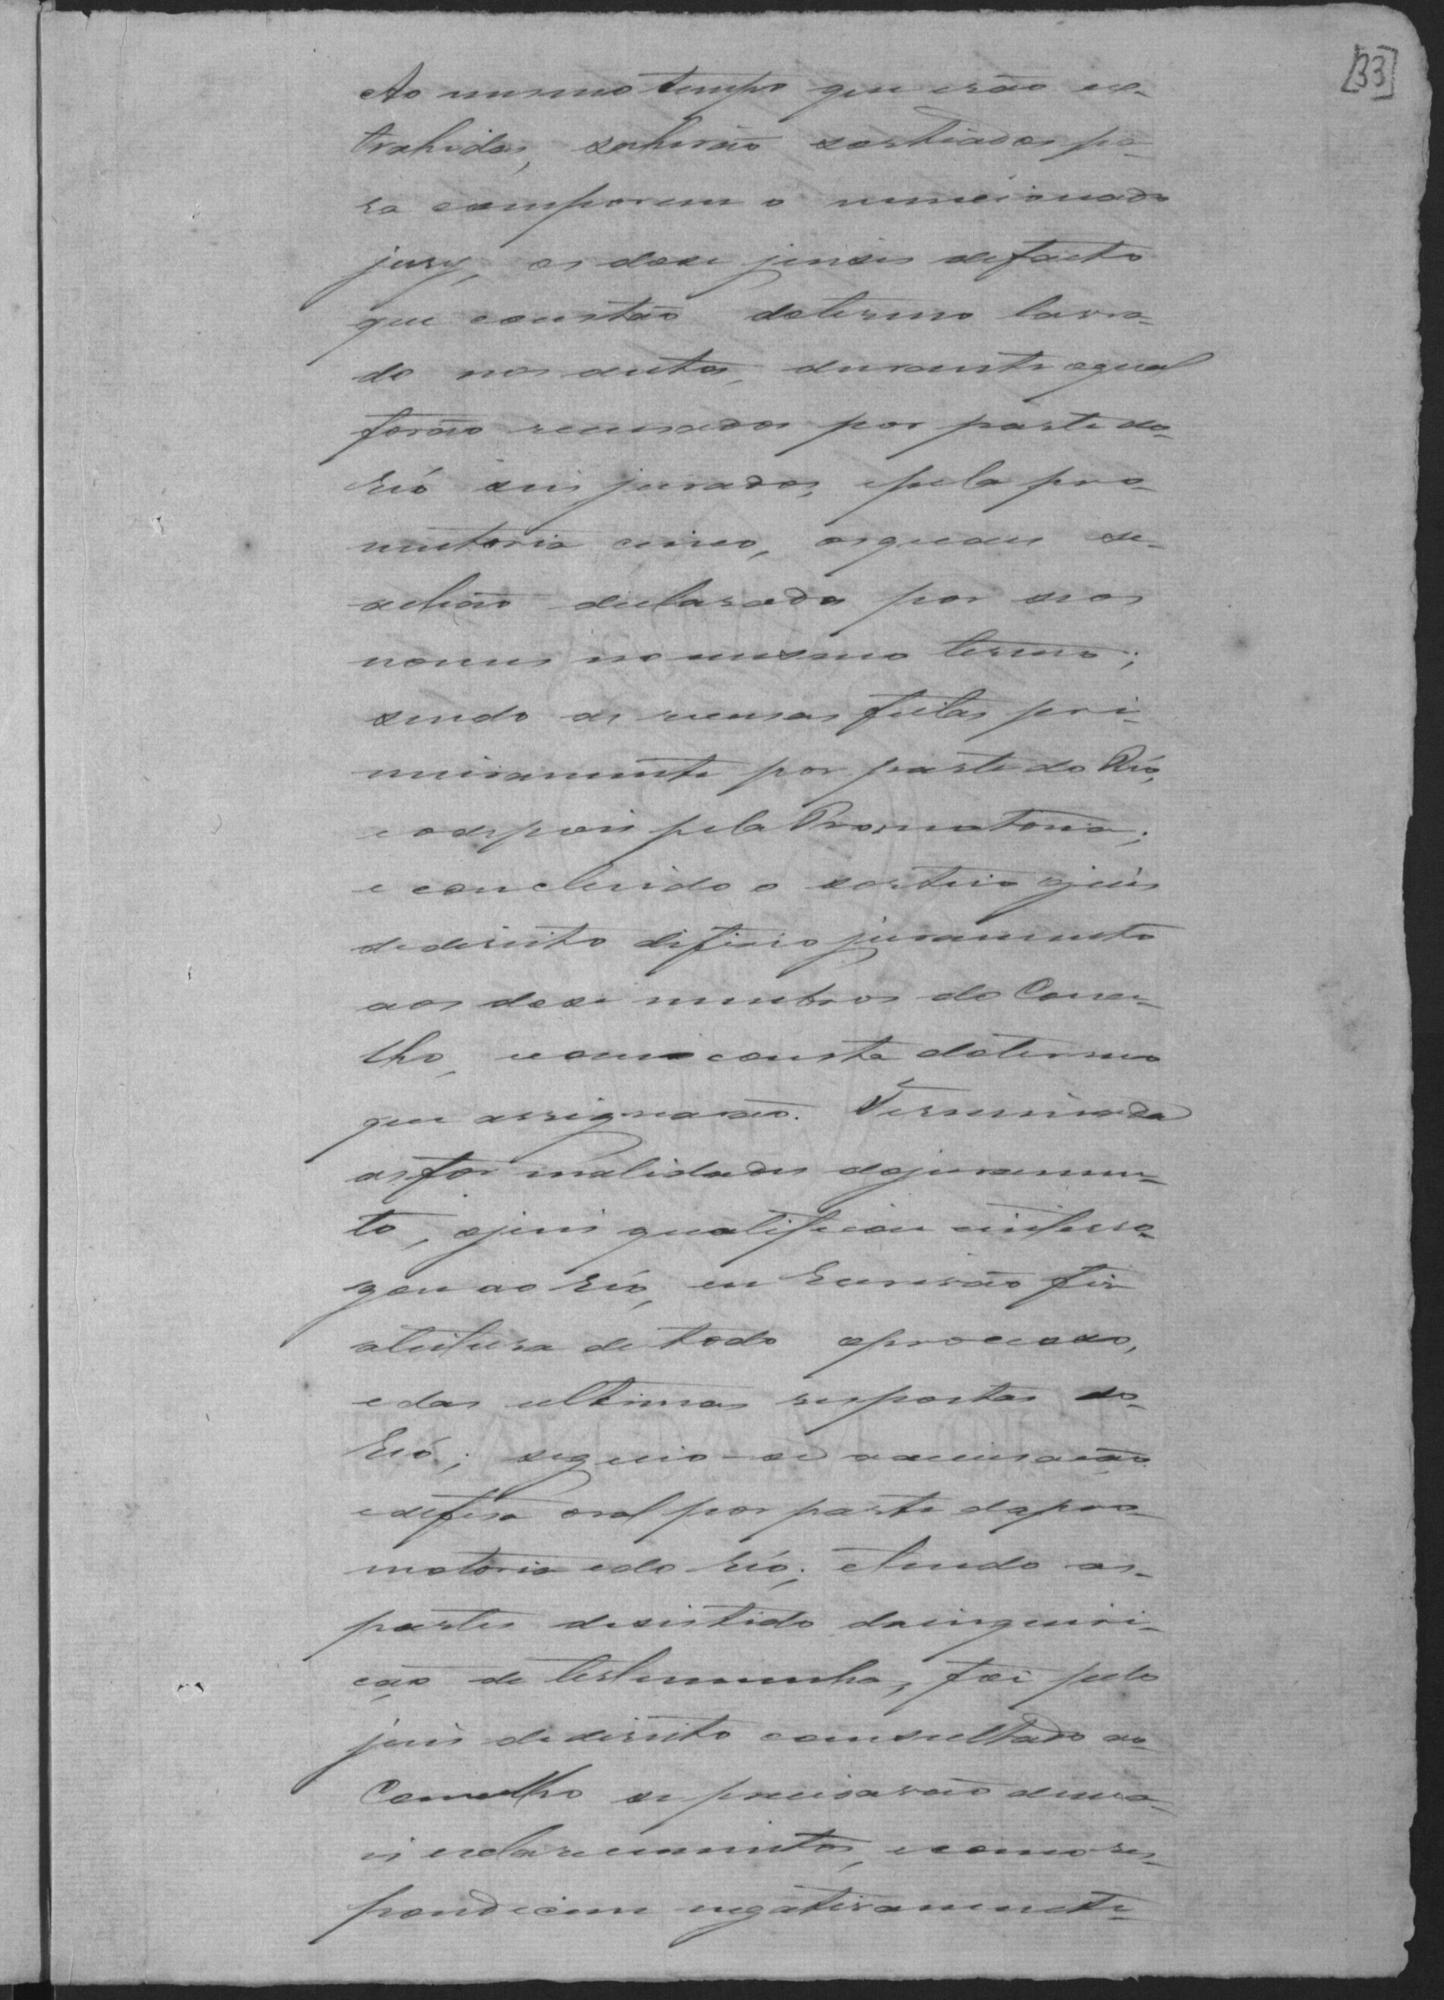 [33]
Ao mesmo tempo que erão ex-
trahidas, sahirão sorteados pa-
ra comporem o mencionado
jury, os doze juises de facto
que constão do termo lavra-
do nos autos, durante o qual
forão recusados por parte do
Réo seis jurados, e pela pro-
motoria cinco, os quaes se
achão declarados por seos
nomes no mesmo termo;
sendo as recusas feitas pri-
meiramente por parte do Réo,
e depois pela Promotoria;
e concluido o sorteio o juis
de direito deferio juramento
aos doze membros do Conce-
lho, como consta do termo
que assignarão. Terminada
as formalidades do juramen-
to, o juis qualificou e interro-
gou ao Réo, eu Escrivão fis
a leitura de todo o processo,
e das ultimas respostas do
Réo; seguio-se a accusação
e defesa oral por parte da pro-
motoria e do Réo; e tendo as
partes desistido da inquiri-
ção de testemunhas, foi pelo
juis de direito consultado ao
Conselho se precisavão de ma-
is esclarecimentos, e como res-
pondecem negativamente